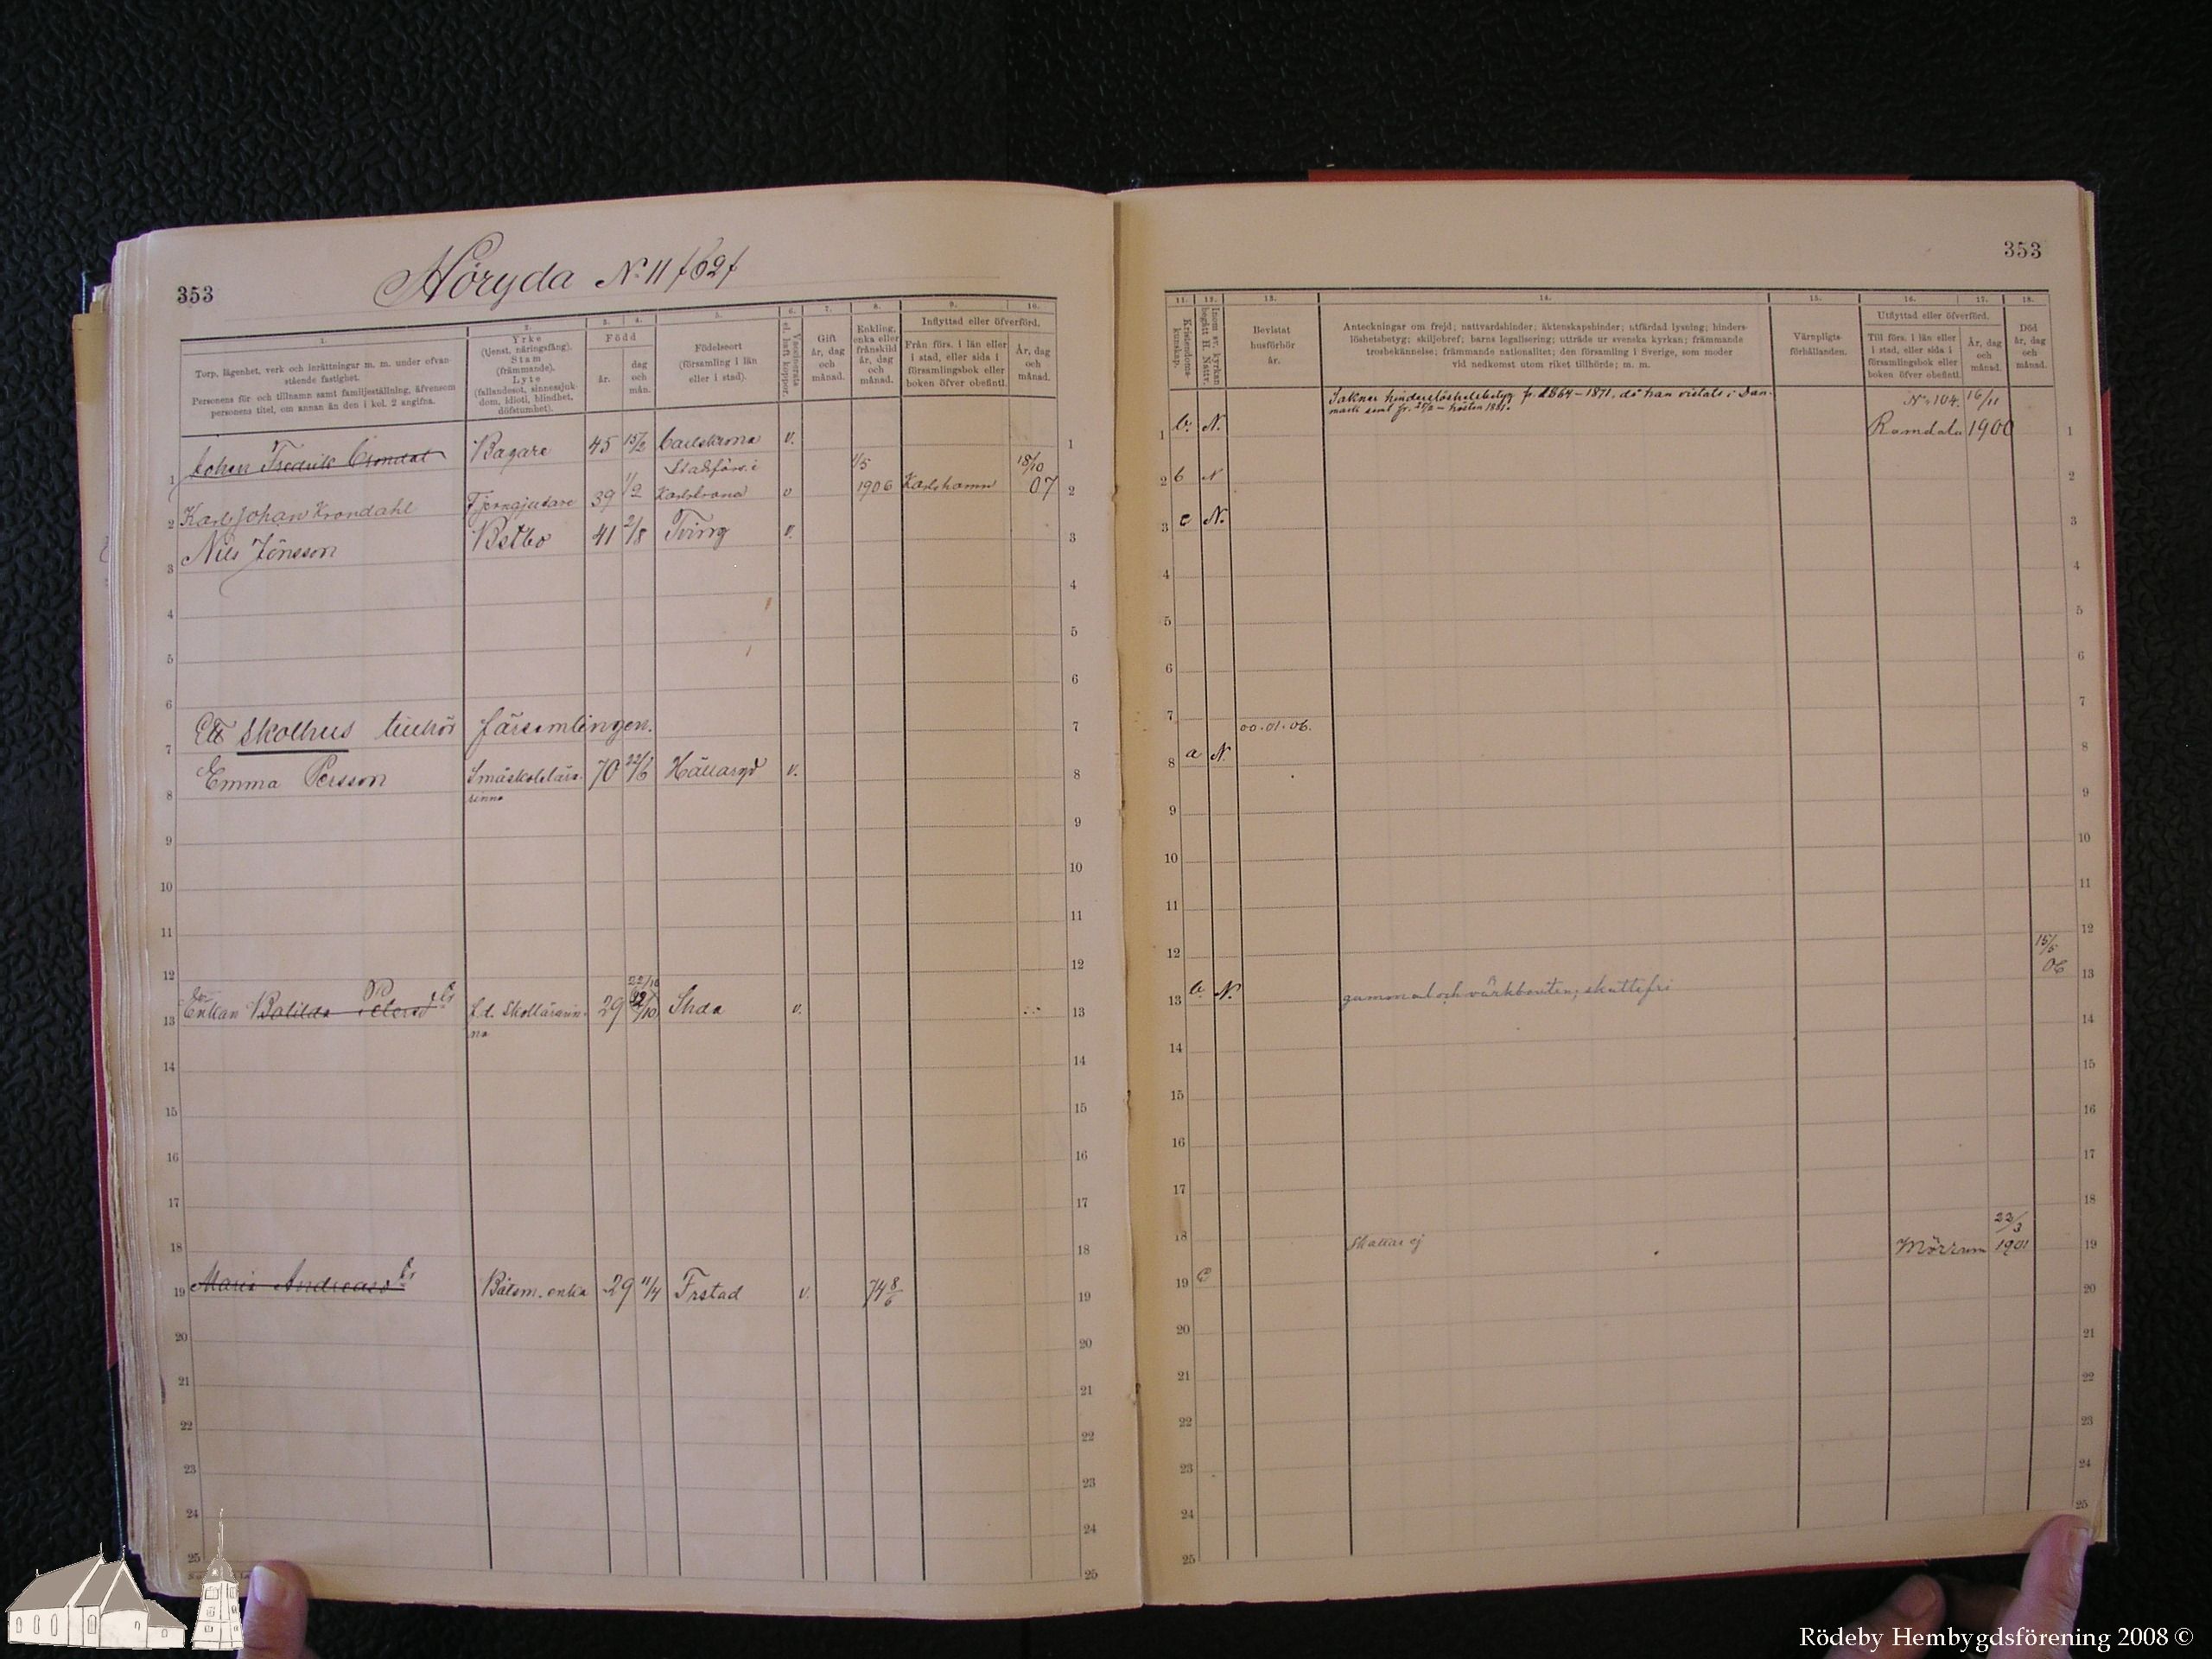 353
Höryda No 11
1. 2. 3. 4. 5. 6. 7. 8. 9. 10.
Torp, lägenhet, verk och inrättningar m. m. under ofvan-
stående fastighet.
Personens för och tillnamn samt familjeställning, äfvensom
personens titel, om annan än den i kol. 2 angifna.
Yrke
(tjenst, näringsfång).
Stam
(främmande).
Lyte
(fallandesot, sinnessjuk-
dom, idioti, blindhet,
döfstumhet).
Född
år.
dag
och
mån.
Födelseort
(församling i län
eller i stad).
Vaccinerats
el. haft koppor.
Gift
år, dag
och
månad.
Enkling,
enka eller
frånskild
år, dag
och
månad.
Inflyttad eller öfverförd.
Från förs. i län eller
i stad, eller sida i
församlingsbok eller
boken öfver obefintl.
År, dag
och
månad.
1 Johan Fredrik Crondal Bagare 45 15/2 Carlskrona v. 1
2 Karl Johan Krondahl Fjerngjutare 39 1/2 Stadsförs. i Karlskrona v 1/5 1906 Karlshamn 18/10 07 2
3 Nils Jönsson 41 2/8 Tving v. 3
4 4
5 5
6 6
7 Ett skolhus tillhör församlingen. 7
8 Emma Persson Småskolelära-
rinna 70 22/6 Hällaryd v. 8
9 9
10 10
11 11
12 12
13 Enkan f.d. Skollärarin-
na 29 22/10 v. 13
14 14
15 15
16 16
17 17
18 18
19 Maria Andreasdr Båtsm. enka 29 11/4 Frstad v. 74 8/6 19
20 20
21 21
22 22
23 23
24 24
25 25
353
11. 12. 13. 14. 15. 16. 17. 18.
Kristendoms-
kunskap.
Inom sv. kyrkan
begått H. Nattv.
Bevistat
husförhör
år.
Anteckningar om frejd; nattvardshinder; äktenskapshinder; utfärdad lysning; hinders-
löshetsbetyg; skiljobref; barns legalisering; utträde ur svenska kyrkan; främmande
trosbekännelse; främmande nationalitet; den församling i Sverige, som moder
vid nedkomst utom riket tillhörde; m. m.
Värnpligts-
förhållanden.
Utflyttad eller öfverförd.
Till förs. i län eller
i stad, eller sida i
församlingsbok eller
boken öfver obefintl.
År, dag
och
månad.
Död
år, dag
och
månad.
Saknar hinderslöshetsbetyg fr. 1864-1871, då han vistats i Dan-
mark samt fr. - hösten
1 b. N. No 104. Ramdala 16/11 1900 1
2 b N 2
3 c N. 3
4 4
5 5
6 6
7 00.01.06. 7
8 a N. 8
9 9
10 10
11 11
12 12
13 b. N. gammal och värkbruten; skattefri 15/5 06 13
14 14
15 15
16 16
17 17
18 Skattar ej 18
19 c Mörrum 22/3 1901 19
20 20
21 21
22 22
23 23
24 24
25 25
Rödeby Hembygdsförening 2008 ©